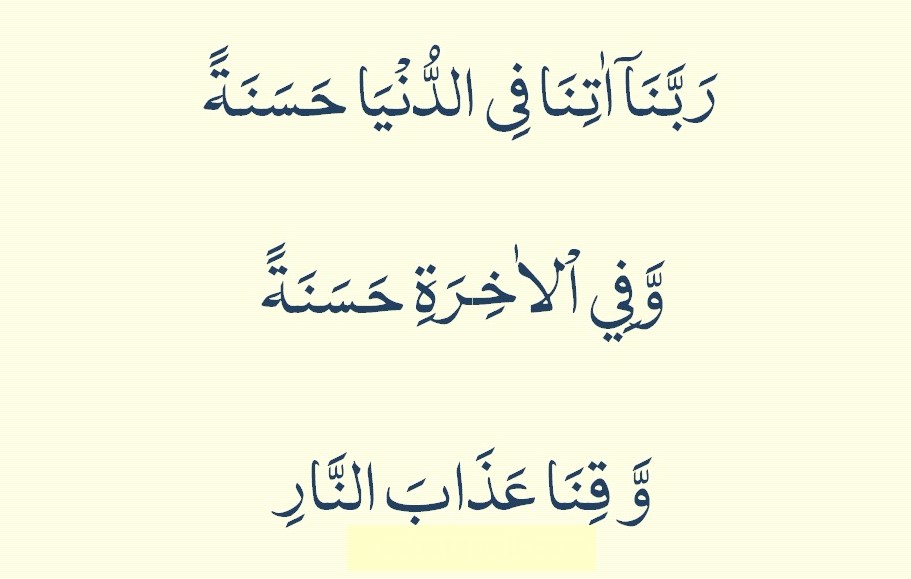 رَبَّنَآ اٰتِنَا فِي الدُّنْيَا حَسَنَةً
وَّفِي ٱلاٰخِرَةِ حَسَنَةً
وَّ قِنَا عَذَابَ النَّارِ